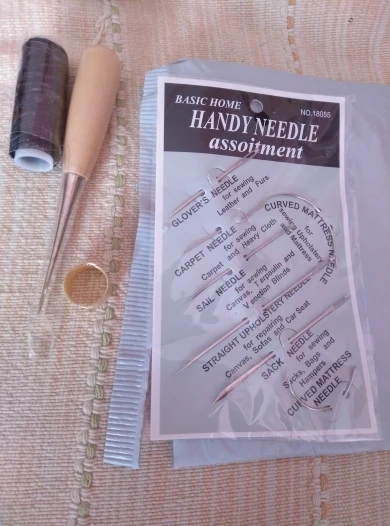 BASIC HOME
NO.18055
HANDY NEEDLE
assoitment
GLOVER'S NEEDLE
for sewing
Leather and Furs
CURVED MATTRESS NEEDLE
for
sewing Upholstery
and Mattress
CARPET NEEDLE
for sewing
Carpet and Heavy Cloth
SAIL NEEDLE
for sewing
Canvas, Tarpaulin and
Venetion Blinds
STRAIGHT UPHOLSTERY NEEDLE
for repairing
Canvas, Sofas and Car Seat
SACK NEEDLE
for sewing
Sacks, Bags and
Hampers
CURVED MATTRESS
NEEDLE